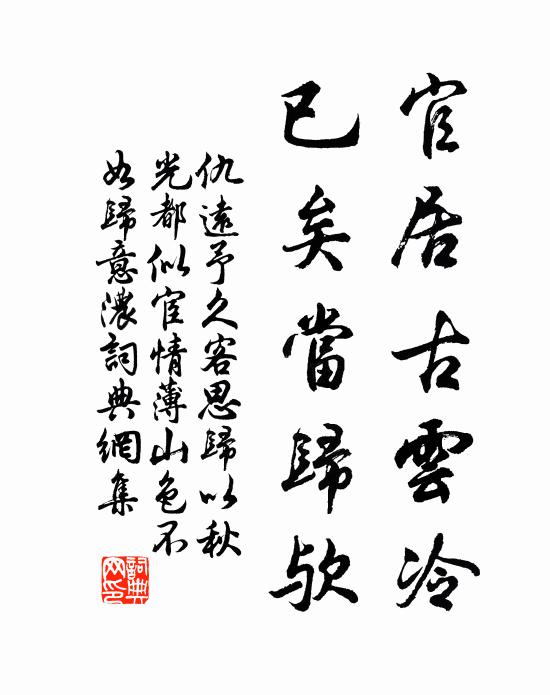 官居古雲冷
已矣當歸欤
仇遠予久客思歸以秋
光都似宦情薄山色不
如歸意濃詞典網集
詞典
网印